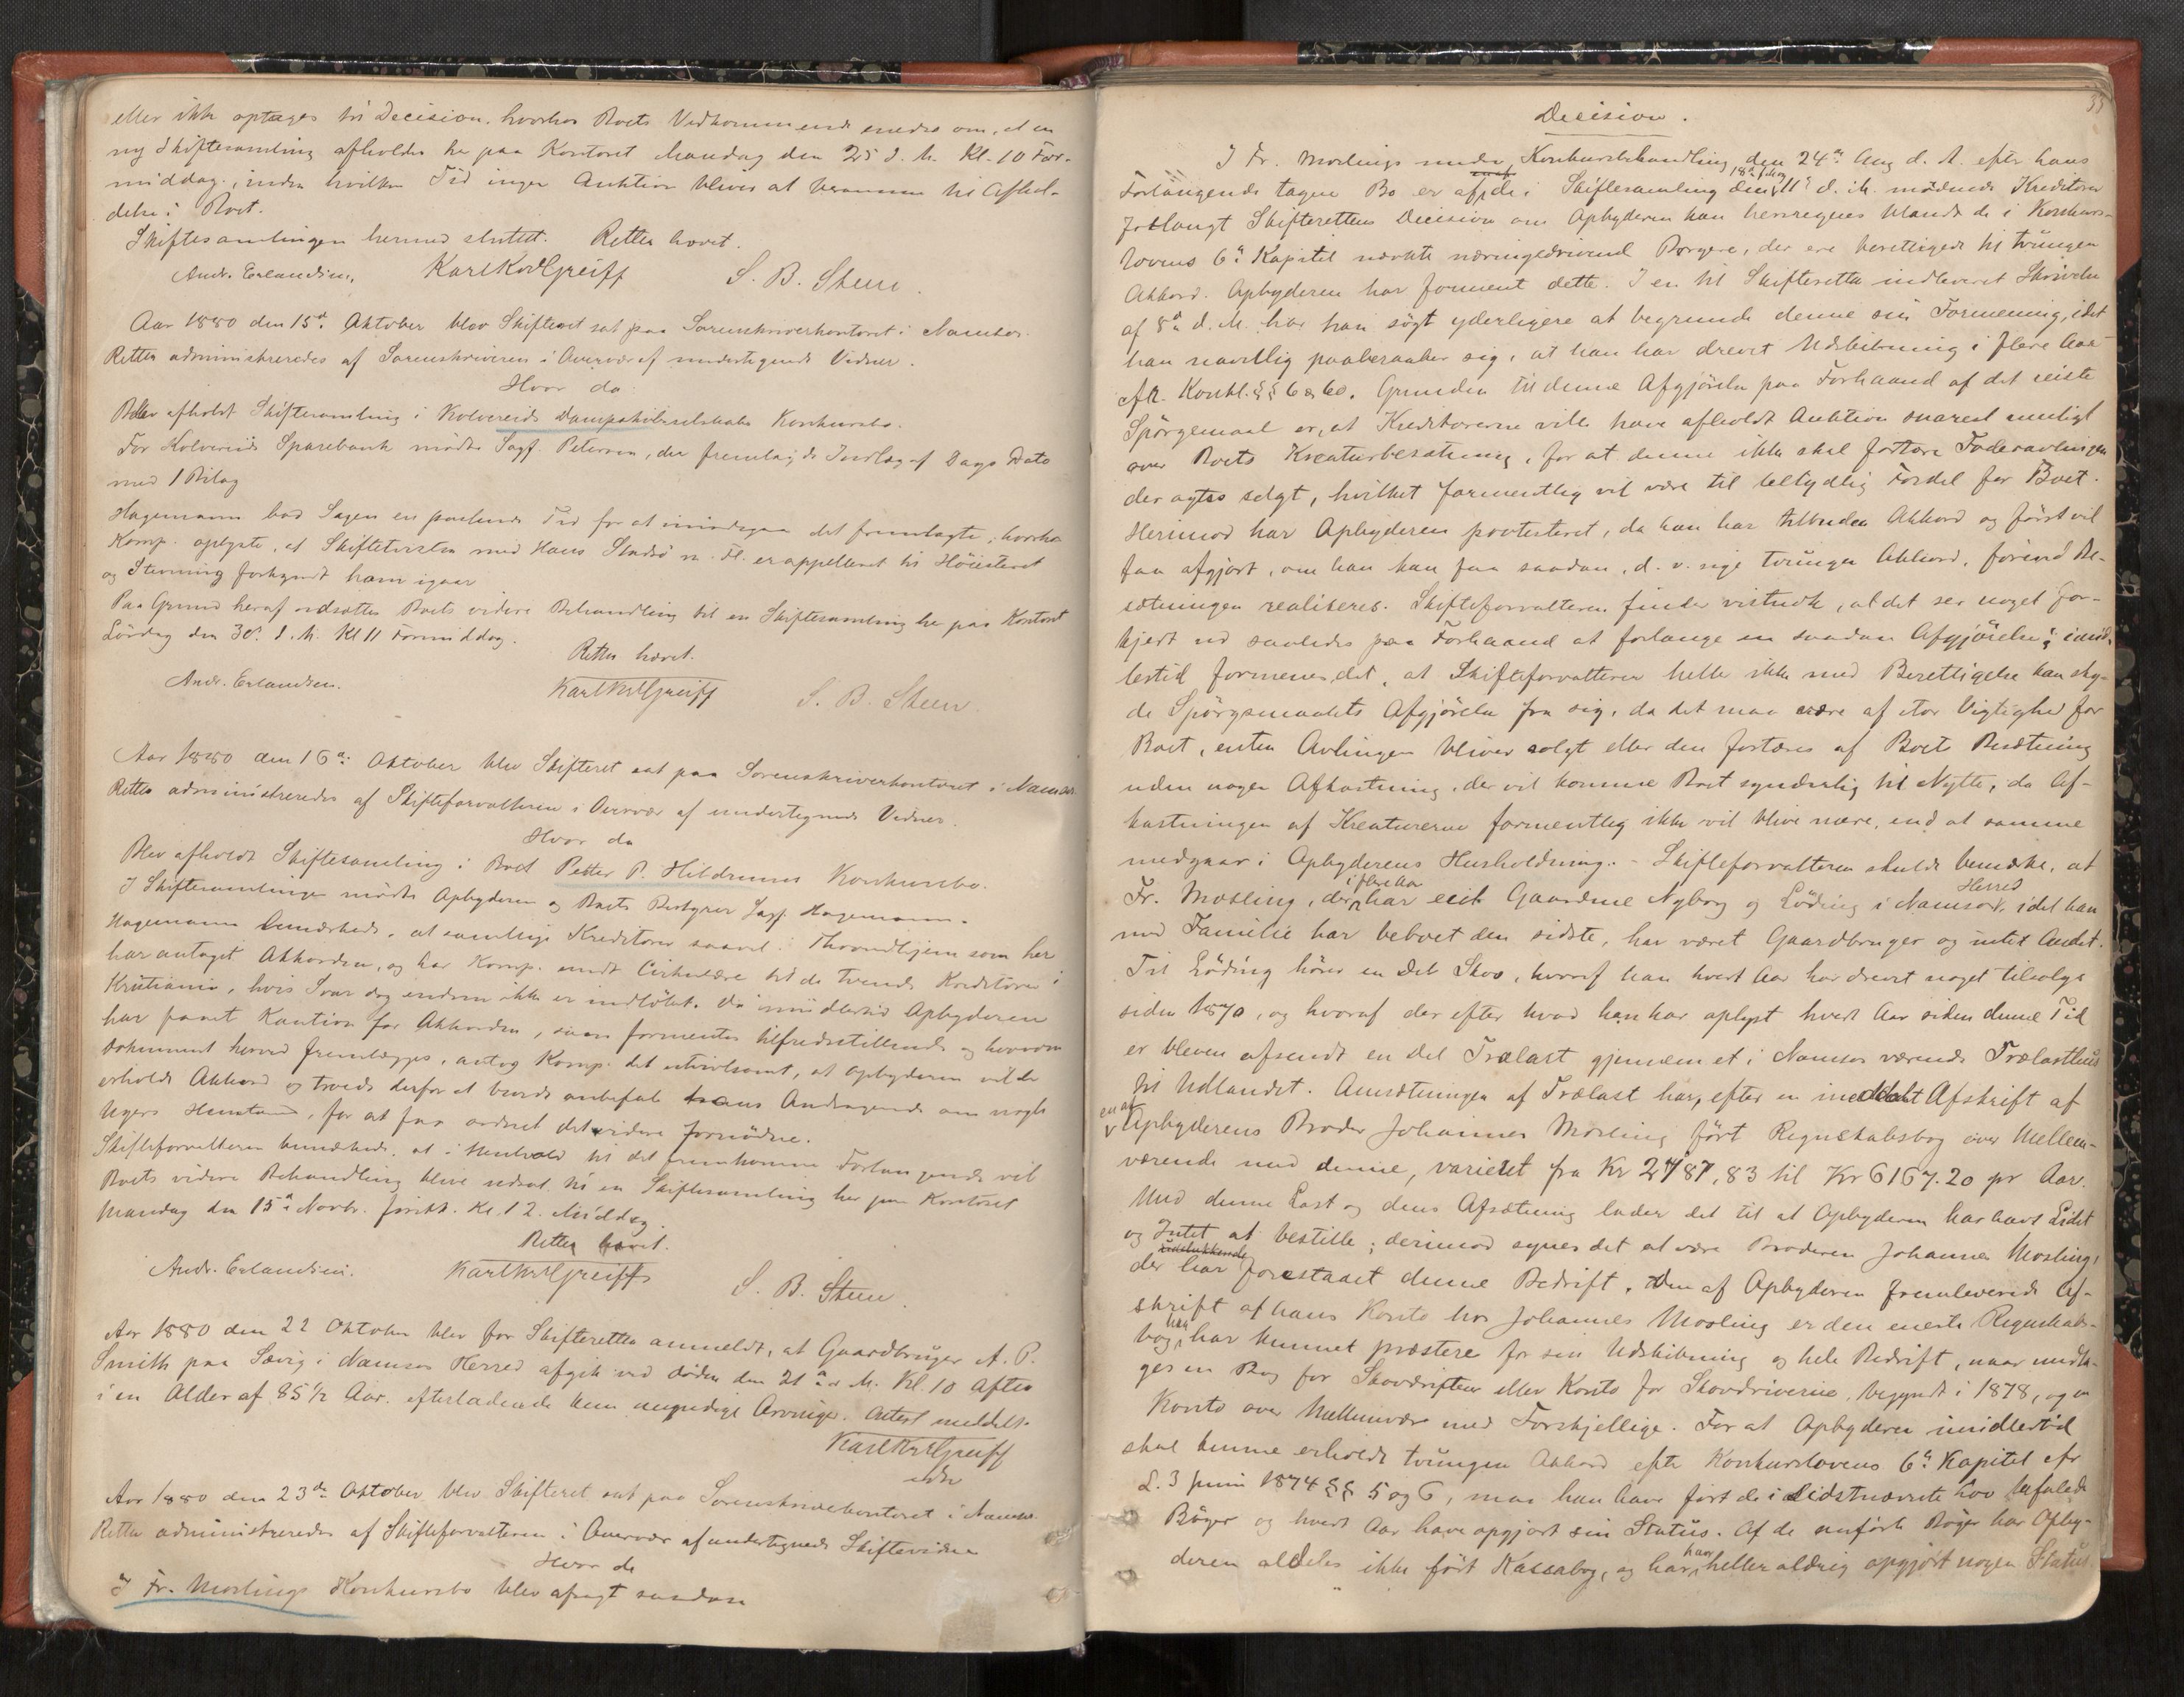 eller ikke optages til Decision, hvorhos Boets Vedkommende enedes om, at en
ny Skiftesamling afholdes her paa Kontoret Mandag den 25 d. M. Kl. 10 For-
middag, inden hvilken Tid ingen Auktion bliver at beramme til Afhol-
delse i Boet.
Skiftesamlingen hermed sluttet. Retten hævet.
Andr. Erlandsen. Karl KvlGreiff S. B. Steen.
Aar 1880 den 15de Oktober blev Skifteret sat paa Sorenskriverkontoret i Namsos.
Retten administreredes af Sorenskriveren i Overvær af undertegnede Vidner.
Hvor da
Blev afholdt Skiftesamling i Kolvereids Dampskibsselskabs Konkursbo.
For Kolvereids Sparebank mødte Sagf. Petersen, der fremlagde Indlæg af Dags Dato
med 1 Bilag
Hagemann bad Sagen en passende Tid for at imødegaa det fremlagte, hvorhos
Komp. oplyste, at Skiftetvisten med Hans Stadsö m. Fl. er appelleret til Höiesteret
og Stevning forkyndt ham igaar
Paa Grund heraf udsættes Boets videre Behandling til en Skiftesamling her paa Kontoret
Lördag den 30. d. M. Kl 11 Formiddag.
Retten hævet.
Andr. Erlandsen. Karl KvlGreiff S. B. Steen.
Aar 1880 den 16de Oktober blev Skifteret sat paa Sorenskriverkontoret i Namsos.
Retten administreredes af Skifteforvalteren i Overvær af undertegnede Vidner.
Hvor da
Blev afholdt Skiftesamling i Boet Petter P. Hildrums Konkursbo.
I Skiftesamlingen mödte Opbyderen og Boets Bestyrer Sagf. Hagemann.
Hagemann bemærkede, at samtlige Kreditorer saavel i Throndhjem som her
har antaget Akkorden, og har Komp. sendt Cirkulære til de tvende Kreditorer i
Kristiania, hvis Svar dog endnu ikke er indlöbet. Da imidlertid Opbyderen
har faaet Kaution for Akkorden, som formentes tilfredsstillende og hvorom
Dokument herved fremlægges, antog Komp. det utvivlsomt, at Opbyderen vilde
erholde Akkord og troede derfor at burde anbefale hans Andragende om nogle
Ugers Henstand, for at faa ordnet det videre fornödne.
Skifteforvalteren bemærkede, at i Henhold til det fremkomne Forlangende vil
Boets videre Behandling blive udsat til en Skiftesamling her paa Kontoret
Mandag den 15de Novbr. förstk. Kl. 12 Middag.
Retten hævet.
Andr. Erlandsen. Karl KvlGreiff S. B. Steen.
Aar 1880 den 22 Oktober blev for Skifteretten anmeldt, at Gaardbruger A. P.
Smith paa Sævig i Namsos Herred afgik ved döden den 21de d. M. Kl. 10 Aften
i en Alder af 85 1/2 Aar, efterladende kun myndige Arvinger. Attest meddelt.
Karl KvlGreiff
Aar 1880 den 23de Oktober blev Skifteret sat paa Sorenskriverkontoret i Namsos.
Retten administreredes af Skifteforvalteren i Overvær af undertegnede Skiftevidner
Hvor da
I Fr. Moslings Konkursbo blev afsagt saadan
33
Decision.
I Fr. Moslings under Konkursbehandling den 24de Aug d. A. efter hans
Forlangende tagne Bo er af de i Skiftesamling den 18de f. M. og 11te d. M. mödende Kreditorer
forlangt Skifterettens Decision om Opbyderen kan henregnes blandt de i Konkurs-
lovens 6te Kapitel nævnte næringsdrivende Borgere, der ere berettigede til tvungen
Akkord. Opbyderen har forment dette. I en til Skifteretten indleveret Skrivelse
af 8de d. M. har han sögt yderligere at begrunde denne sin Formening, idet
han navnlig paaberaaber sig, at han har drevet Udskibning i flere Aar
cfr. Konkl. §§ 6 og 60. Grunden til denne Afgjörelse paa Forhaand af det reiste
Spörgsmaal er, at Kreditorerne ville have afholdt Auktion snarest muligt
over Boets Kreaturbesætning, for at denne ikke skal fortære Foderavlingen
der agtes solgt, hvilket formentlig vil være til betydelig Fordel for Boet.
Herimod har Opbyderen protesteret, da han har tilbuden Akkord og först vil
faa afgjort, om han kan faa saadan, d. v. sige tvungen Akkord, förend Be-
sætningen realiseres. Skifteforvalteren finder vistnok, at det ser noget for-
kjert ud saaledes paa Forhaand at forlange en saadan Afgjörelse; imid-
lertid formenes det, at Skifteforvalteren heller ikke med Berettigelse kan sky-
de Spörgsmaalets Afgjörelse fra sig, da det maa være af stor Vigtighed for
Boet, enten Avlingen bliver solgt eller den fortæres af Boets Besætning
uden nogen Afkastning, der vil komme Boet synderlig til Nytte, da Af-
kastningen af Kreaturerne formentlig ikke vil blive mere, end at samme
medgaar i Opbyderens Husholdning. - Skifteforvalteren skulde bemærke, at
Fr. Mosling, der i flere Aar har eiet Gaardene Nyborg og Löding i Namsos Herred, idet han
med Familie har beboet den sidste, har været Gaardbruger og intet Andet.
Til Löding hörer en Del Skov, hvoraf han hvert Aar har drevet noget tilsalgs
siden 1870, og hvoraf der efter hvad han har oplyst hvert Aar siden denne Tid
er bleven afsendt en Del Trælast gjennem et i Namsos værende Trælasthus
til Udlandet. Omsætningen af Trælast har, efter en meddelt Afskrift af
en af Opbyderens Broder Johannes Mosling fört Regnskabsbog over Mellem-
værende med denne, varieret fra Kr 2787,83 til Kr 6167.20 pr Aar.
Med denne Last og dens Afsætning lader det til at Opbyderen har havt Lidet
og Intet at bestille; derimod synes det at være Broderen Johannes Mosling,
der har udelukkende forestaaet denne Bedrift. Den af Opbyderen fremleverede Af-
skrift af hans Konto hos Johannes Mosling er den eneste Regnskabs-
bog han har kunnet præstere for sin Udskibning og hele Bedrift, naar undta-
ges en Bog for Skovdriften eller Konto for Skovdriverne, begyndt i 1878, og en
Konto over Mellemvær med Forskjellige. For at Opbyderen imidlertid
skal kunne erholde tvungen Akkord efter Konkurslovens 6te Kapitel cfr
L. 3 Juni 1874 §§ 5 og 6, maa han have fört de i sidstnævnte Lov befalede
Böger og hvert Aar have opgjort sin Status. Af de anförte Böger har Opby-
deren aldeles ikke fört Kassabog, og har han heller aldrig opgjört nogen Status